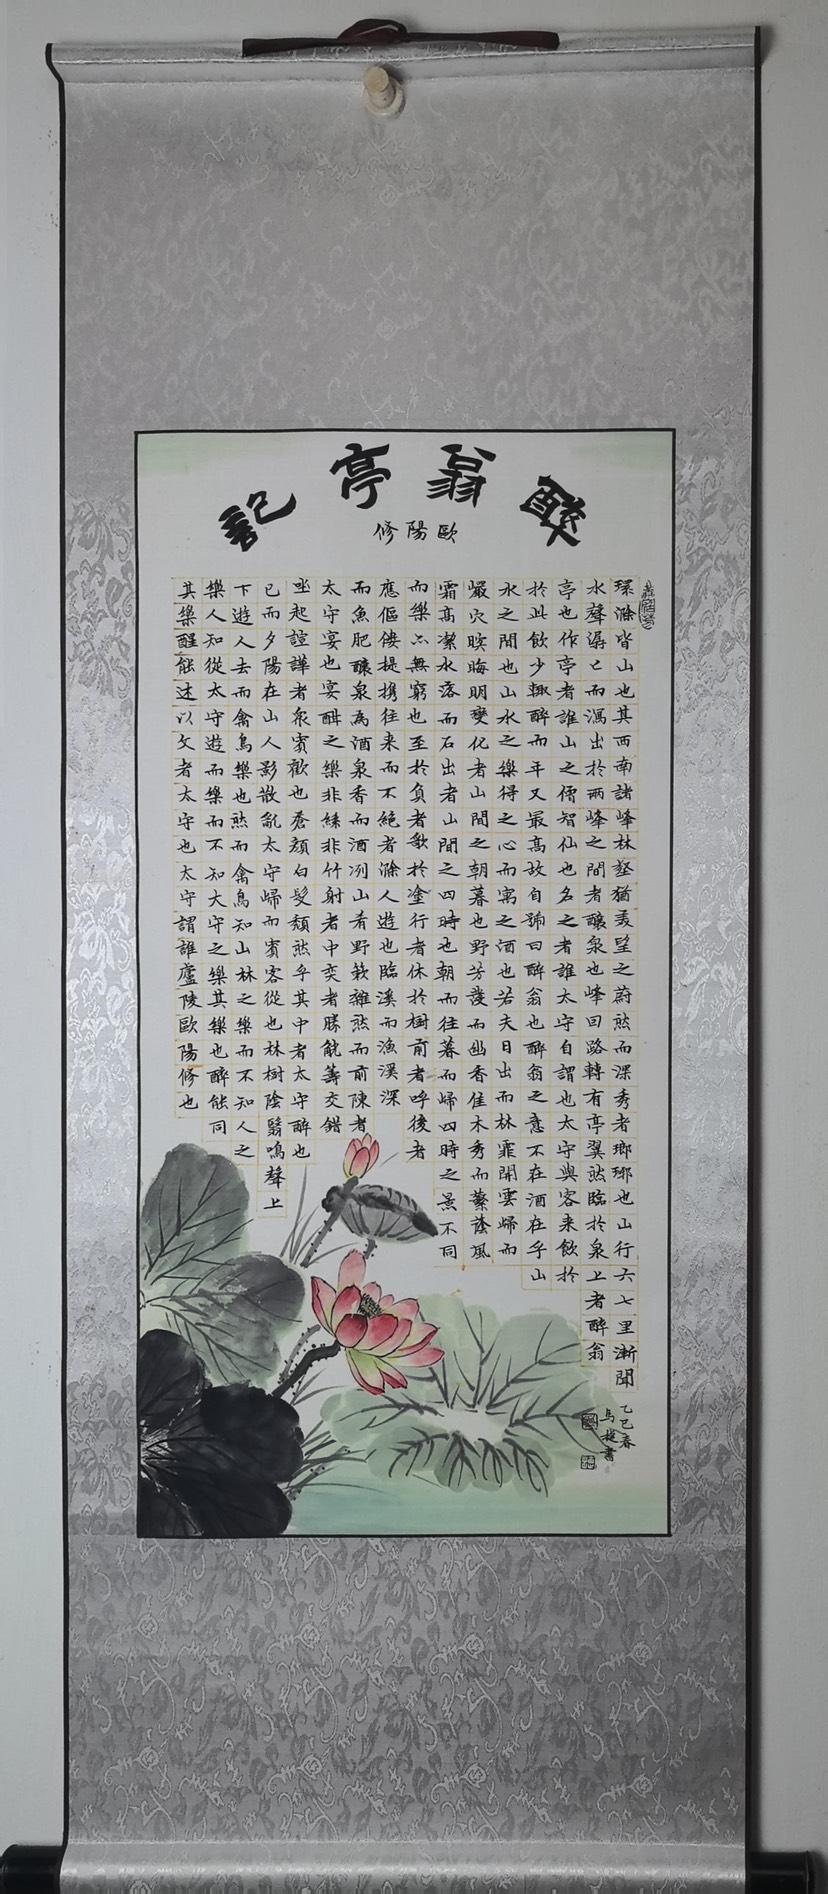 醉翁亭記
歐陽修
環滁皆山也其西南諸峰林壑猶美望之蔚然而深秀者瑯琊也山行六七里漸聞
水聲潺〻而瀉出於兩峰之間者釀泉也峰回路轉有亭翼然臨於泉上者醉翁
亭也作亭者誰山之僧智仙也名之者誰太守自謂也太守與客来飲於
於此飲少輒醉而年又最高故自號曰醉翁也醉翁之意不在酒在乎山
水之間也山水之樂得之心而寓之酒也若夫日出而林霏開雲歸而
巖穴暝晦明變化者山間之朝暮也野芳發而幽香佳木秀而蘩蔭風
霜高潔水落而石出者山間之四時也朝而往暮而歸四時之景不同
而樂亦無窮也至於負者歌於塗行者休於樹前者呼後者
應傴僂提携往来而不絕者滁人遊也臨溪而漁溪深
而魚肥釀泉為酒泉香而酒冽山肴野蔌雜然而前陳者
太守宴也宴酣之樂非絲非竹射者中奕者勝觥籌交錯
坐起諠譁者衆賓歡也蒼顏白髮頹然乎其中者太守醉也
已而夕陽在山人影散亂太守歸而賓客從也林樹陰翳鳴聲上
下遊人去而禽鳥樂也然而禽鳥知山林之樂而不知人之
樂人知從太守遊而樂而不知大守之樂其樂也醉能同
其樂醒能述以文者太守也太守謂誰廬陵歐陽修也
乙巳春
書